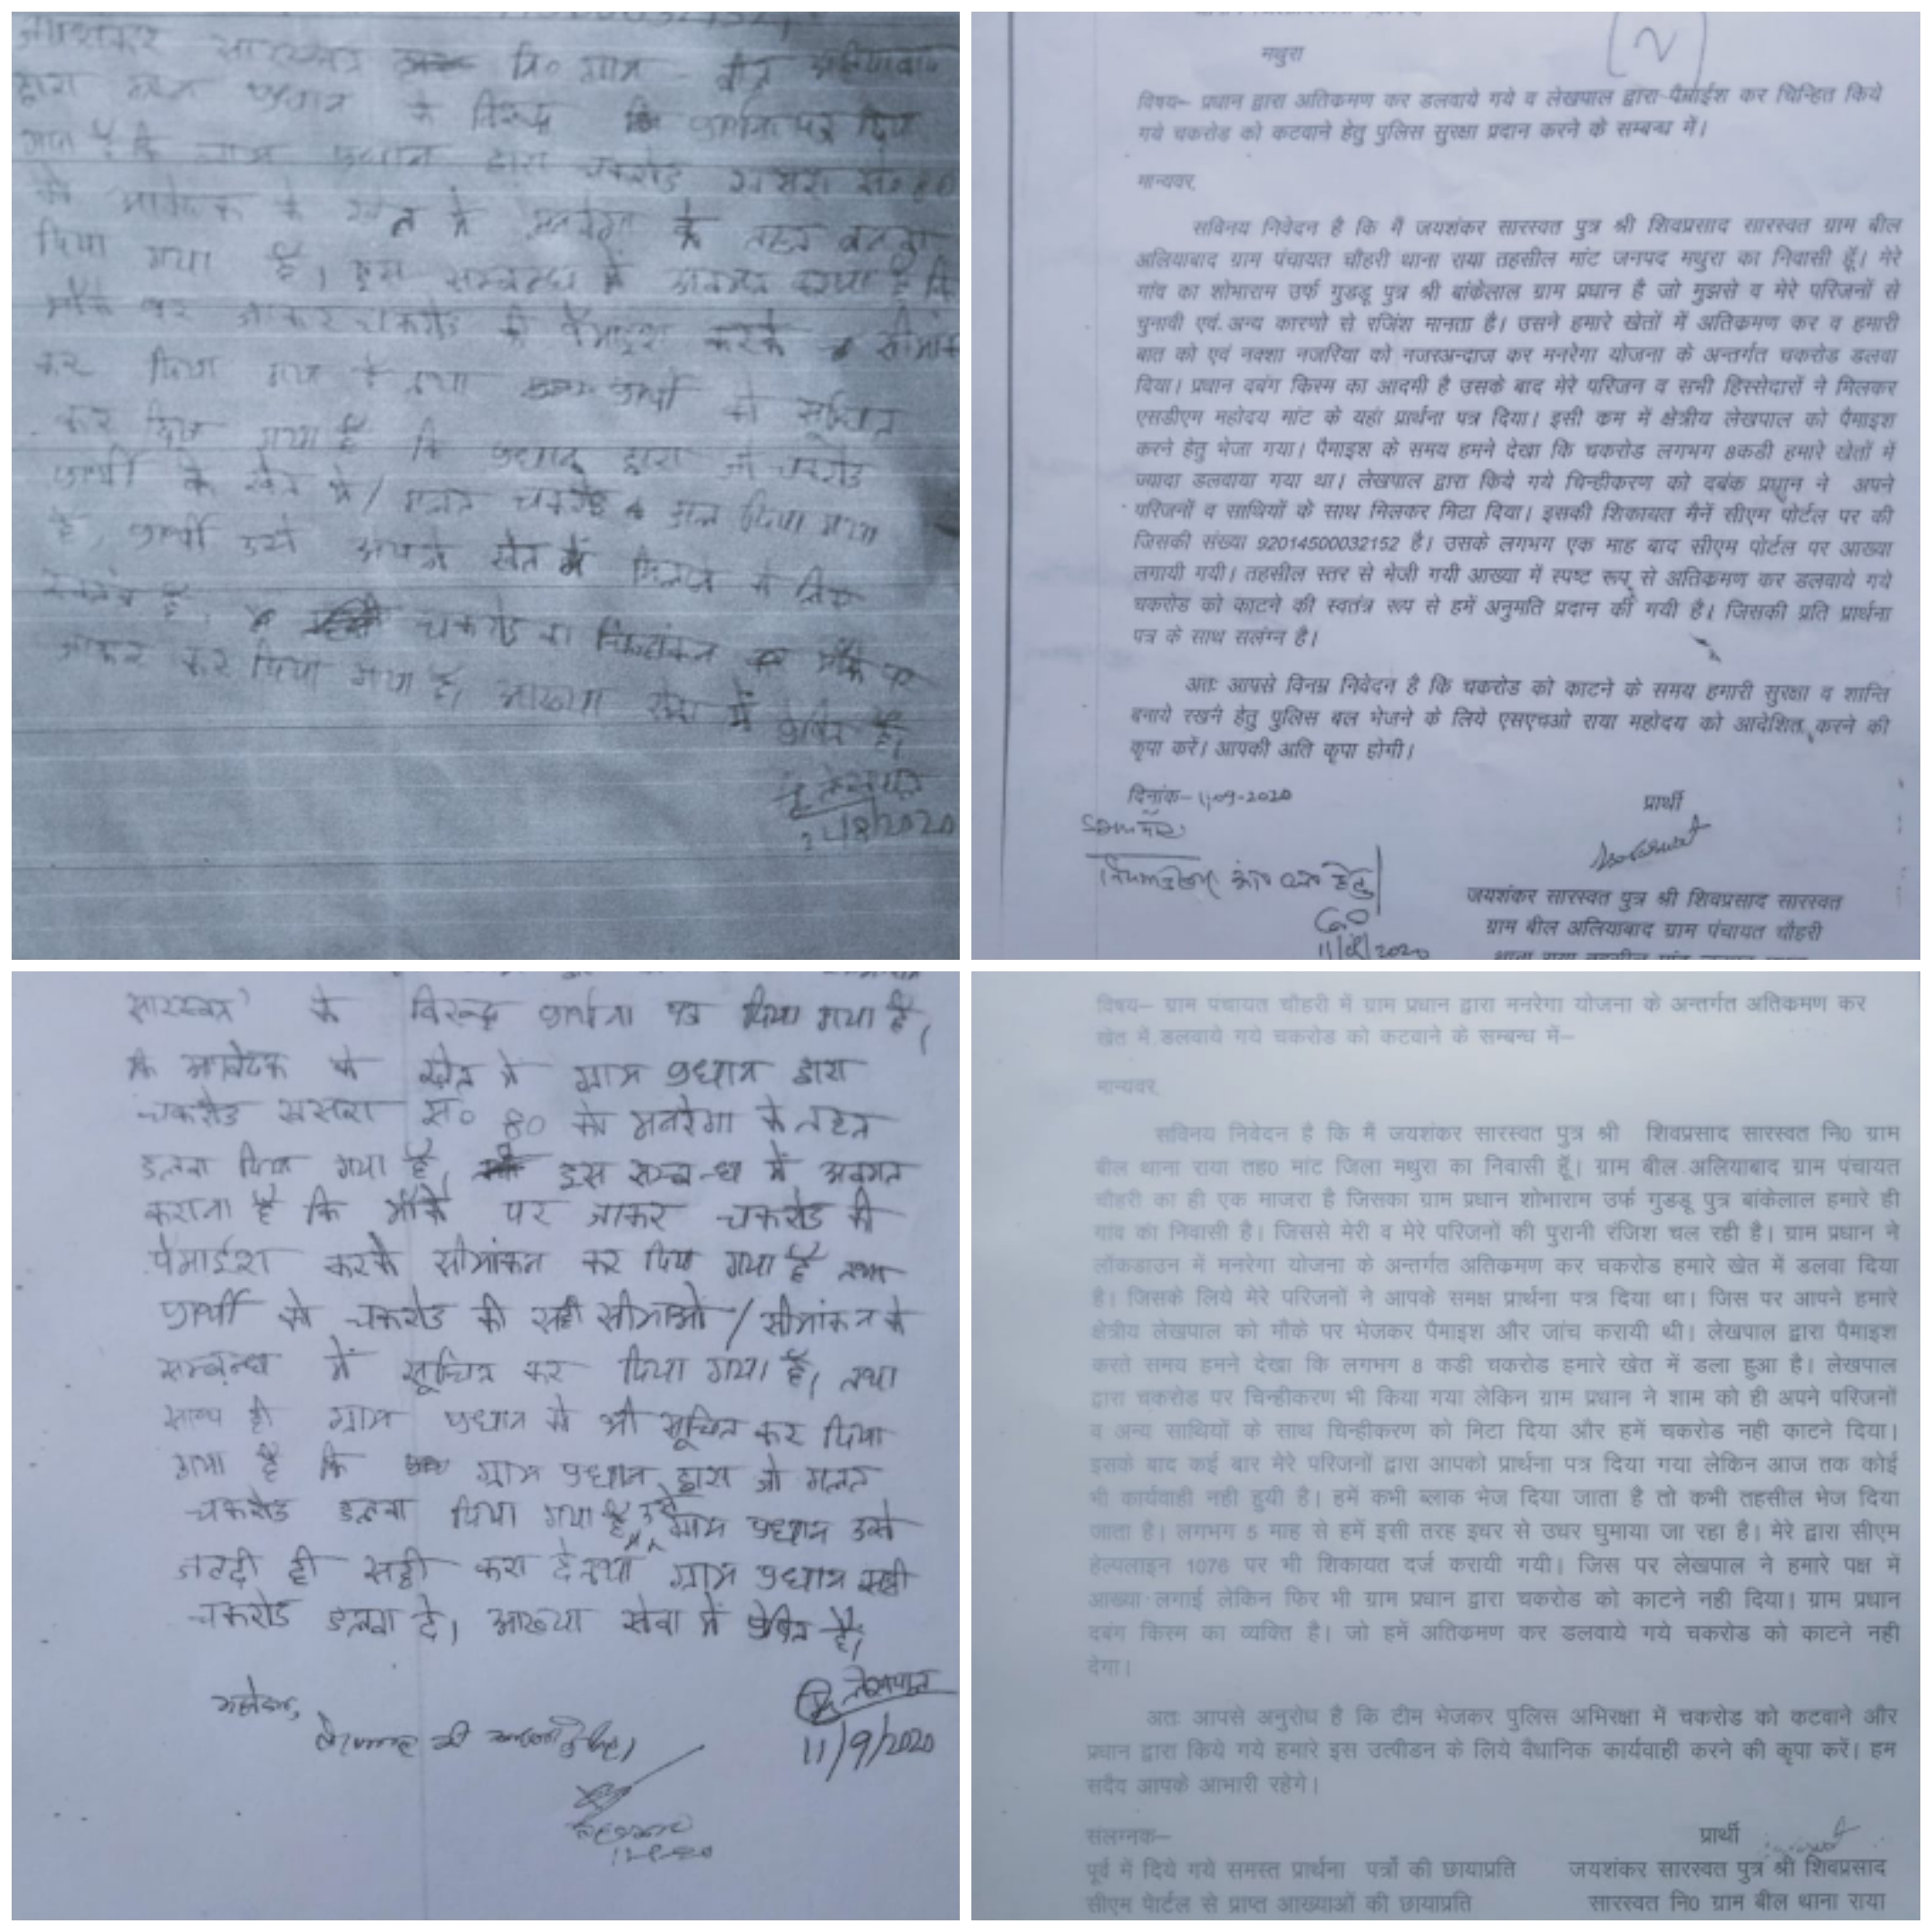 जयशंकर सारस्वत नि० ग्राम - बील अलियाबाद
द्वारा ग्राम प्रधान के विरुद्ध प्रार्थना पत्र दिया
गया है कि ग्राम प्रधान द्वारा चकरोड खसरा सं० 80
को आवेदक के खेत में मनरेगा के तहत डलवा
दिया गया है। इस सम्बन्ध में अवगत कराना है कि
मौके पर जाकर चकरोड की पैमाईश करके सीमांकन
कर दिया गया है तथा प्रार्थी को सूचित
कर दिया गया है कि प्रधान द्वारा जो चकरोड
प्रार्थी के खेत में / गलत चकरोड डाल दिया गया
है, प्रार्थी उसे अपने खेत में मिलाने के लिए
स्वतंत्र है। चकरोड का चिन्हांकन मौके पर
जाकर कर दिया गया है। आख्या सेवा में
प्रेषित है।
लेखपाल
/8/2020
मथुरा
विषय– प्रधान द्वारा अतिकमण कर डलवाये गये व लेखपाल द्वारा पैमाईश कर चिन्हित किये
गये चकरोड को कटवाने हेतु पुलिस सुरक्षा प्रदान करने के सम्बन्ध में।
मान्यवर,
सविनय निवेदन है कि मैं जयशंकर सारस्वत पुत्र श्री शिवप्रसाद सारस्वत ग्राम बील
अलियाबाद ग्राम पंचायत चौहरी थाना राया तहसील मांट जनपद मथुरा का निवासी हूँ। मेरे
गांव का शोभाराम उर्फ गुडडू पुत्र श्री बांकेलाल ग्राम प्रधान है जो मुझसे व मेरे परिजनों से
चुनावी एवं अन्य कारणो से रजिंश मानता है। उसने हमारे खेतों में अतिकमण कर व हमारी
बात को एवं नक्शा नजरिया को नजरअन्दाज कर मनरेगा योजना के अन्तर्गत चकरोड डलवा
दिया। प्रधान दबंग किस्म का आदमी है उसके बाद मेरे परिजन व सभी हिस्सेदारों ने मिलकर
एसडीएम महोदय मांट के यहां प्रार्थना पत्र दिया। इसी कम में क्षेत्रीय लेखपाल को पैमाइश
करने हेतु भेजा गया। पैमाइश के समय हमने देखा कि चकरोड लगभग 8कडी हमारे खेतों में
ज्यादा डलवाया गया था। लेखपाल द्वारा किये गये चिन्हीकरण को दबंक प्रधान ने अपने
परिजनों व साथियों के साथ मिलकर मिटा दिया। इसकी शिकायत मैनें सीएम पोर्टल पर की
जिसकी संख्या 92014500032152 है। उसके लगभग एक माह बाद सीएम पोर्टल पर आख्या
लगायी गयी। तहसील स्तर से भेजी गयी आख्या में स्पष्ट रूप से अतिकमण कर डलवाये गये
चकरोड को काटने की स्वतंत्र रूप से हमें अनुमति प्रदान की गयी है। जिसकी प्रति प्रार्थना
पत्र के साथ सलंग्न है।
अतः आपसे विनम्र निवेदन है कि चकरोड को काटने के समय हमारी सुरक्षा व शान्ति
बनाये रखने हेतु पुलिस बल भेजने के लिये एसएचओ राया महोदय को आदेशित करने की
कृपा करें। आपकी अति कृपा होगी।
दिनांक– 11-09-2020
प्रार्थी
हेतु
CO
जयशंकर सारस्वत पुत्र श्री शिवप्रसाद सारस्वत
ग्राम बील अलियाबाद ग्राम पंचायत चौहरी
सारस्वत' के विरुद्ध प्रार्थना पत्र दिया गया है।
कि आवेदक के खेत में ग्राम प्रधान द्वारा
चकरोड खसरा सं० 80 को मनरेगा के तहत
डलवा दिया गया है। इस सम्बन्ध में अवगत
कराना है कि मौके पर जाकर चकरोड की
पैमाईश करके सीमांकन कर दिया गया है तथा
प्रार्थी को चकरोड की सही सीमाओ / सीमांकन के
सम्बन्ध में सूचित कर दिया गया है। तथा
साथ ही ग्राम प्रधान को भी सूचित कर दिया
गया है कि ग्राम प्रधान द्वारा जो गलत
चकरोड डलवा दिया गया है, उसे ग्राम प्रधान उसे
जल्दी ही सही करा दे तथा ग्राम प्रधान सही
चकरोड डलवा दे। आख्या सेवा में प्रेषित है।
महोदय,
लेखपाल
11/9/2020
विषय– ग्राम पंचायत चौहरी में ग्राम प्रधान द्वारा मनरेगा योजना के अन्तर्गत अतिकमण कर
खेत में डलवाये गये चकरोड को कटवाने के सम्बन्ध में–
मान्यवर,
सविनय निवेदन है कि मैं जयशंकर सारस्वत पुत्र श्री शिवप्रसाद सारस्वत नि0 ग्राम
बील थाना राया तह0 मांट जिला मथुरा का निवासी हूँ। ग्राम बील अलियाबाद ग्राम पंचायत
चौहरी का ही एक माजरा है जिसका ग्राम प्रधान शोभाराम उर्फ गुडडू पुत्र बांकेलाल हमारे ही
गांव का निवासी है। जिससे मेरी व मेरे परिजनों की पुरानी रंजिश चल रही है। ग्राम प्रधान ने
लॉकडाउन में मनरेगा योजना के अन्तर्गत अतिकमण कर चकरोड हमारे खेत में डलवा दिया
है। जिसके लिये मेरे परिजनों ने आपके समक्ष प्रार्थना पत्र दिया था। जिस पर आपने हमारे
क्षेत्रीय लेखपाल को मौके पर भेजकर पैमाइश और जांच करायी थी। लेखपाल द्वारा पैमाइश
करते समय हमने देखा कि लगभग 8 कडी चकरोड हमारे खेत में डला हुआ है। लेखपाल
द्वारा चकरोड पर चिन्हीकरण भी किया गया लेकिन ग्राम प्रधान ने शाम को ही अपने परिजनों
व अन्य साथियों के साथ चिन्हीकरण को मिटा दिया और हमें चकरोड नही काटने दिया।
इसके बाद कई बार मेरे परिजनों द्वारा आपको प्रार्थना पत्र दिया गया लेकिन आज तक कोई
भी कार्यवाही नही हुयी है। हमें कभी ब्लाक भेज दिया जाता है तो कभी तहसील भेज दिया
जाता है। लगभग 5 माह से हमें इसी तरह इधर से उधर घुमाया जा रहा है। मेरे द्वारा सीएम
हेल्पलाइन 1076 पर भी शिकायत दर्ज करायी गयी। जिस पर लेखपाल ने हमारे पक्ष में
आख्या लगाई लेकिन फिर भी ग्राम प्रधान द्वारा चकरोड को काटने नही दिया। ग्राम प्रधान
दबंग किस्म का व्यक्ति है। जो हमें अतिकमण कर डलवाये गये चकरोड को काटने नही
देगा।
अतः आपसे अनुरोध है कि टीम भेजकर पुलिस अभिरक्षा में चकरोड को कटवाने और
प्रधान द्वारा किये गये हमारे इस उत्पीडन के लिये वैधानिक कार्यवाही करने की कृपा करें। हम
सदैव आपके आभारी रहेगे।
संलग्नक–
प्रार्थी
पूर्व में दिये गये समस्त प्रार्थना पत्रों की छायाप्रति
जयशंकर सारस्वत पुत्र श्री शिवप्रसाद
सीएम पेार्टल से प्राप्त आख्याओं की छायाप्रति
सारस्वत नि0 ग्राम बील थाना राया